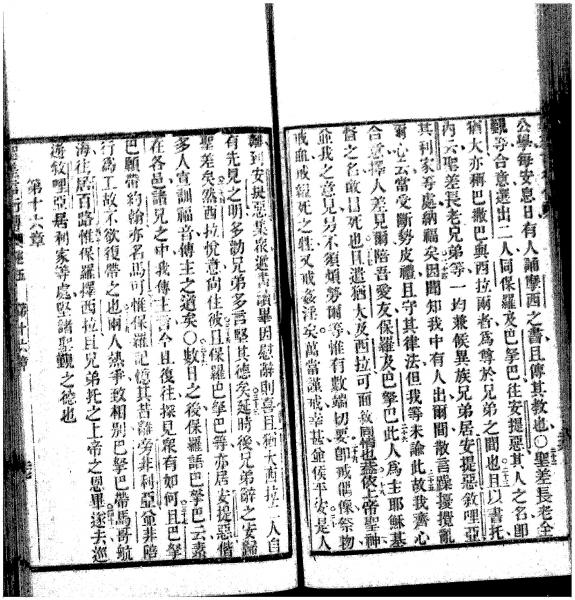 公學每安息日有人誦摩西之書且傳其教也○聖差長老全
覲等合意選出二人同保羅及巴拏巴往安提惡其人之名即
猶大亦稱巴撒巴與西拉兩者爲尊於兄弟之間也且以書托
內云聖差長老兄弟等一均兼候異族兄弟居安提惡敘哩亞
其利家等處納福矣因聞知我中有人出爾間散言躁擾攪亂
爾心云當受斷勢皮禮且守其律法但我等未諭此故我齊心
合意擇人差見爾陪吾愛友保羅及巴拏巴此人爲主耶穌基
督之名敢日死也且遣猶大及西拉可面敘同情也蓋依上帝聖神
並我之意見另不須煩勞爾等惟有數端切要即戒偶像祭物
戒血戒縊死之牲又戒姦淫矣萬當謹戒幸甚並候平安是人
歸到安提惡集衆遞書讀畢因慰辭則喜且猶大西拉二人自
有先見之明多勸兄弟多言堅其德矣延時後兄弟辭之安歸
聖差矣然西拉悅意尚住彼且保羅巴拏巴等亦居安提惡偕
多人宣訓福音傳主之道矣○數日之後保羅語巴拏巴云素
在各邑諸兄之中我傳主言今且復往探見衆有如何且巴拏
巴願帶約翰亦名馬可惟保羅記憶其昔離旁非利亞並非陪
行爲工故不欲復帶之也兩人熱爭致相別巴拏巴帶馬哥航
海往居百路惟保羅擇西拉且兄弟托之上帝之恩畢遂去巡
遊敘哩亞居利家等處堅諸聖覲之德也
第十六章